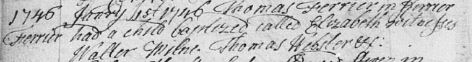 1746 Janry 1st 1746 Thomas Ferrier in
Ferrier had a child baptized called Elizabeth Witnesses
Walter Milne. Thomas Webster &c.